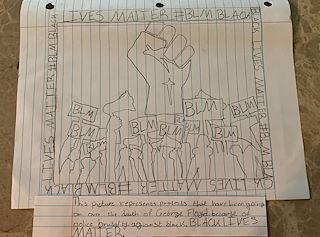 LIVES MATTER #BLM BLACK
LIVES MATTER #BLM BLACK
BLACK LIVES MATTER #BLM
BLM
BLM
BLM
BLM
BLM
BLM
BLM
LIVES MATTER #BLM BLACK
This picture represents protests that have been going
on over the death of George Floyd because of
police brutality against black. BLACK LIVES
MATTER.